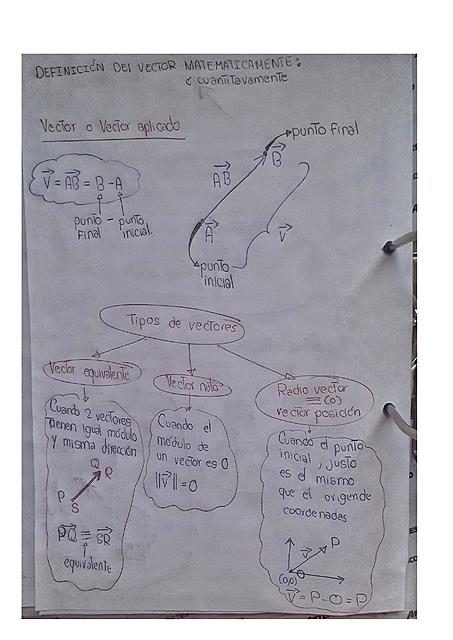 DEFINICIÓN DEl VECTOR MATEMATICAMENTE:
ó cuantitavamente
Vector o Vector aplicado
V = AB = B - A
punto - punto
Final inicial.
punto final
B
AB
A
V
punto
inicial
Tipos de vectores
Vector equivalente
Cuando 2 vectores
tienen igual módulo
y misma dirección
Q R
P S
PQ ≡ SR
equivalente
Vector nulo
Cuando el
módulo de
un vector es 0
||V|| = 0
Radio vector
≡ (o)
vector posición
Cuando el punto
inicial, justo
es el mismo
que el origen de
coordenadas
V P
(0,0)
V = P - O = P